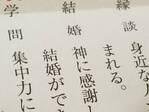 縁談 身近な人
まれる。
結婚 神に感謝し
結婚がで
学問 集中力に